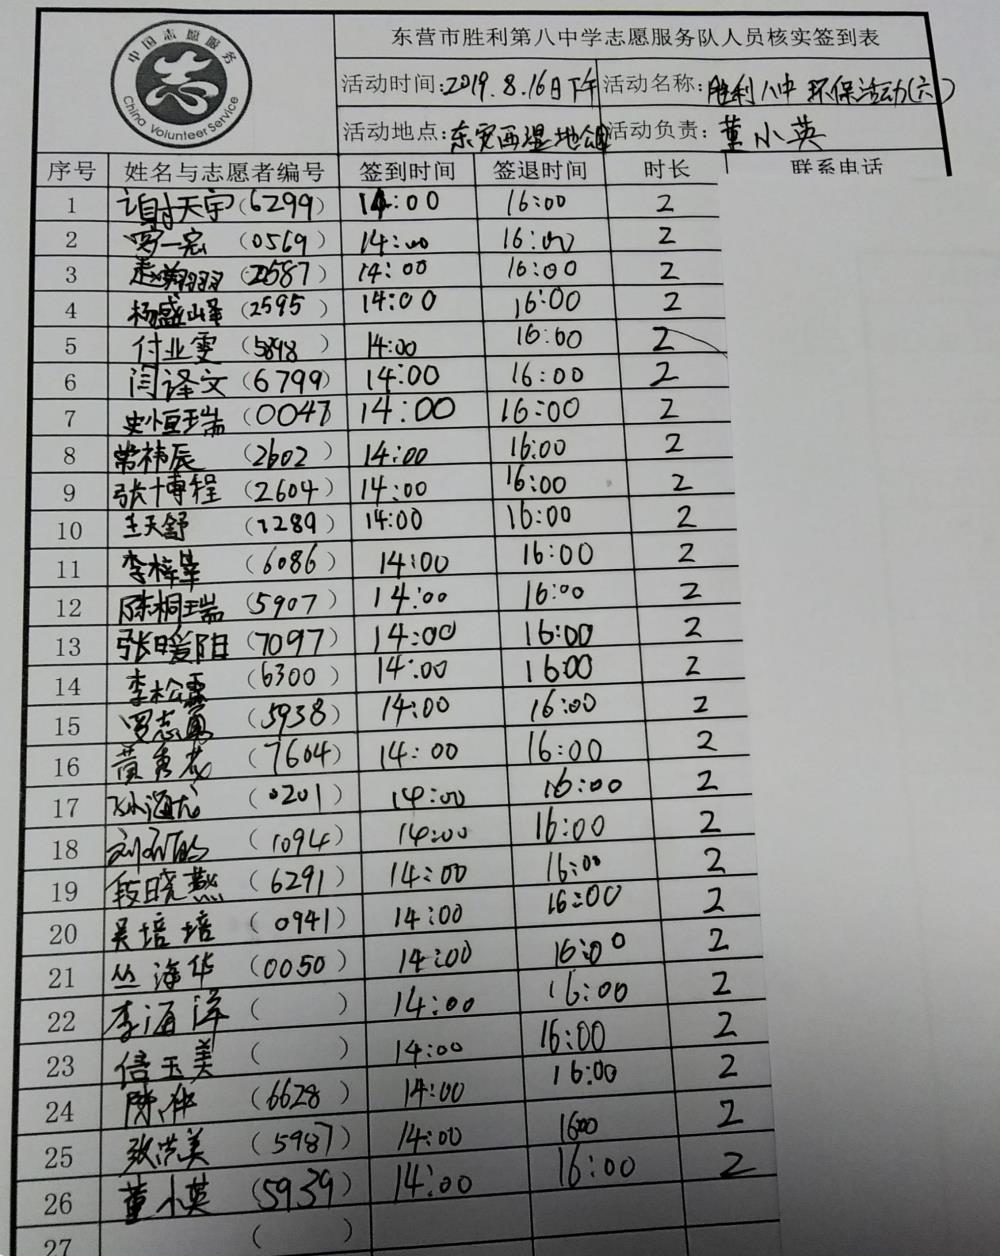 中国志愿服务
志
China Volunteer Service
东营市胜利第八中学志愿服务队人员核实签到表
活动时间:2019.8.16日下午 活动名称:胜利八中 环保活动(六)
活动地点: 湿地 活动负责: 董小英
序号 姓名与志愿者编号 签到时间 签退时间 时长 联系电话
1 谢天宇(6299) 14:00 16:00 2
2 罗一宏 (0569) 14:00 16:00 2
3 赵翔羽 (2587) 14:00 16:00 2
4 杨盛峰(2595) 14:00 16:00 2
5 付业雯 ( ) 14:00 16:00 2
6 闫译文(6799) 14:00 16:00 2
7 史恒瑞(0047 14:00 16:00 2
8 常祎辰 (2602) 14:00 16:00 2
9 张博程 (2604) 14:00 16:00 2
10 王天舒 (1289) 14:00 16:00 2
11 (6086) 14:00 16:00 2
12 陈桐瑞 (5907) 14:00 16:00 2
13 张暖阳(7097) 14:00 16:00 2
14 李松霖 (6300) 14:00 16:00 2
15 罗志勇 (5938) 14:00 16:00 2
16 (7604) 14:00 16:00 2
17 孙海龙 (0201) 14:00 16:00 2
18 (1094) 14:00 16:00 2
19 段晓燕 (6291) 14:00 16:00 2
20 吴培培 (0941) 14:00 16:00 2
21 丛海华 (0050) 14:00 16:00 2
22 李海洋 ( ) 14:00 16:00 2
23 信玉美 ( ) 14:00 16:00 2
24 (6628) 14:00 16:00 2
25 张洪美 (5987) 14:00 1600 2
26 董小英 (5939) 14:00 16:00 2
27 ( )